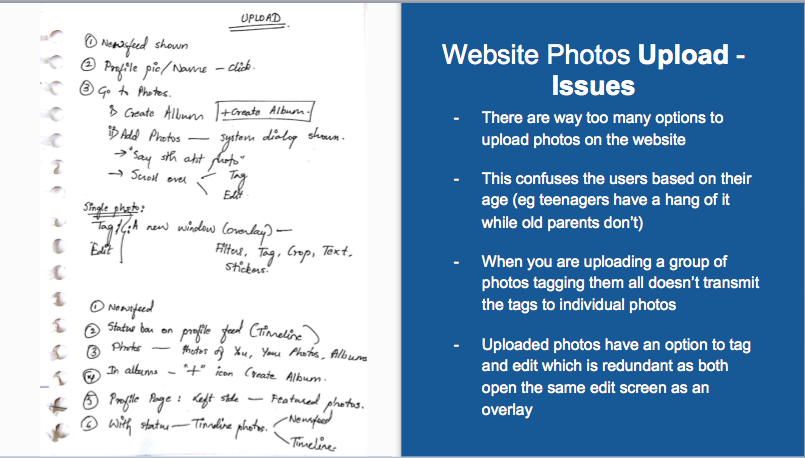 UPLOAD
① Newsfeed shown
② Profile pic/Name - click.
③ Go to Photos.
i) Create Album +Create Album
ii) Add Photos — system dialog shown.
→ "Say sth abt photo"
→ Scroll over Tag
Edit
Single photo:
Tag / : A new window (overlay) —
Edit Filters, Tag, Crop, Text,
Stickers.
① Newsfeed
② Status bar on profile feed (Timeline)
③ Photos — Photos of You, Your Photos, Albums
④ In albums - "+" icon Create Album.
⑤ Profile Page: Left side — Featured photos.
⑥ With status — Timeline photos. Newsfeed
Timeline
Website Photos Upload -
Issues
- There are way too many options to
upload photos on the website
- This confuses the users based on their
age (eg teenagers have a hang of it
while old parents don't)
- When you are uploading a group of
photos tagging them all doesn't transmit
the tags to individual photos
- Uploaded photos have an option to tag
and edit which is redundant as both
open the same edit screen as an
overlay